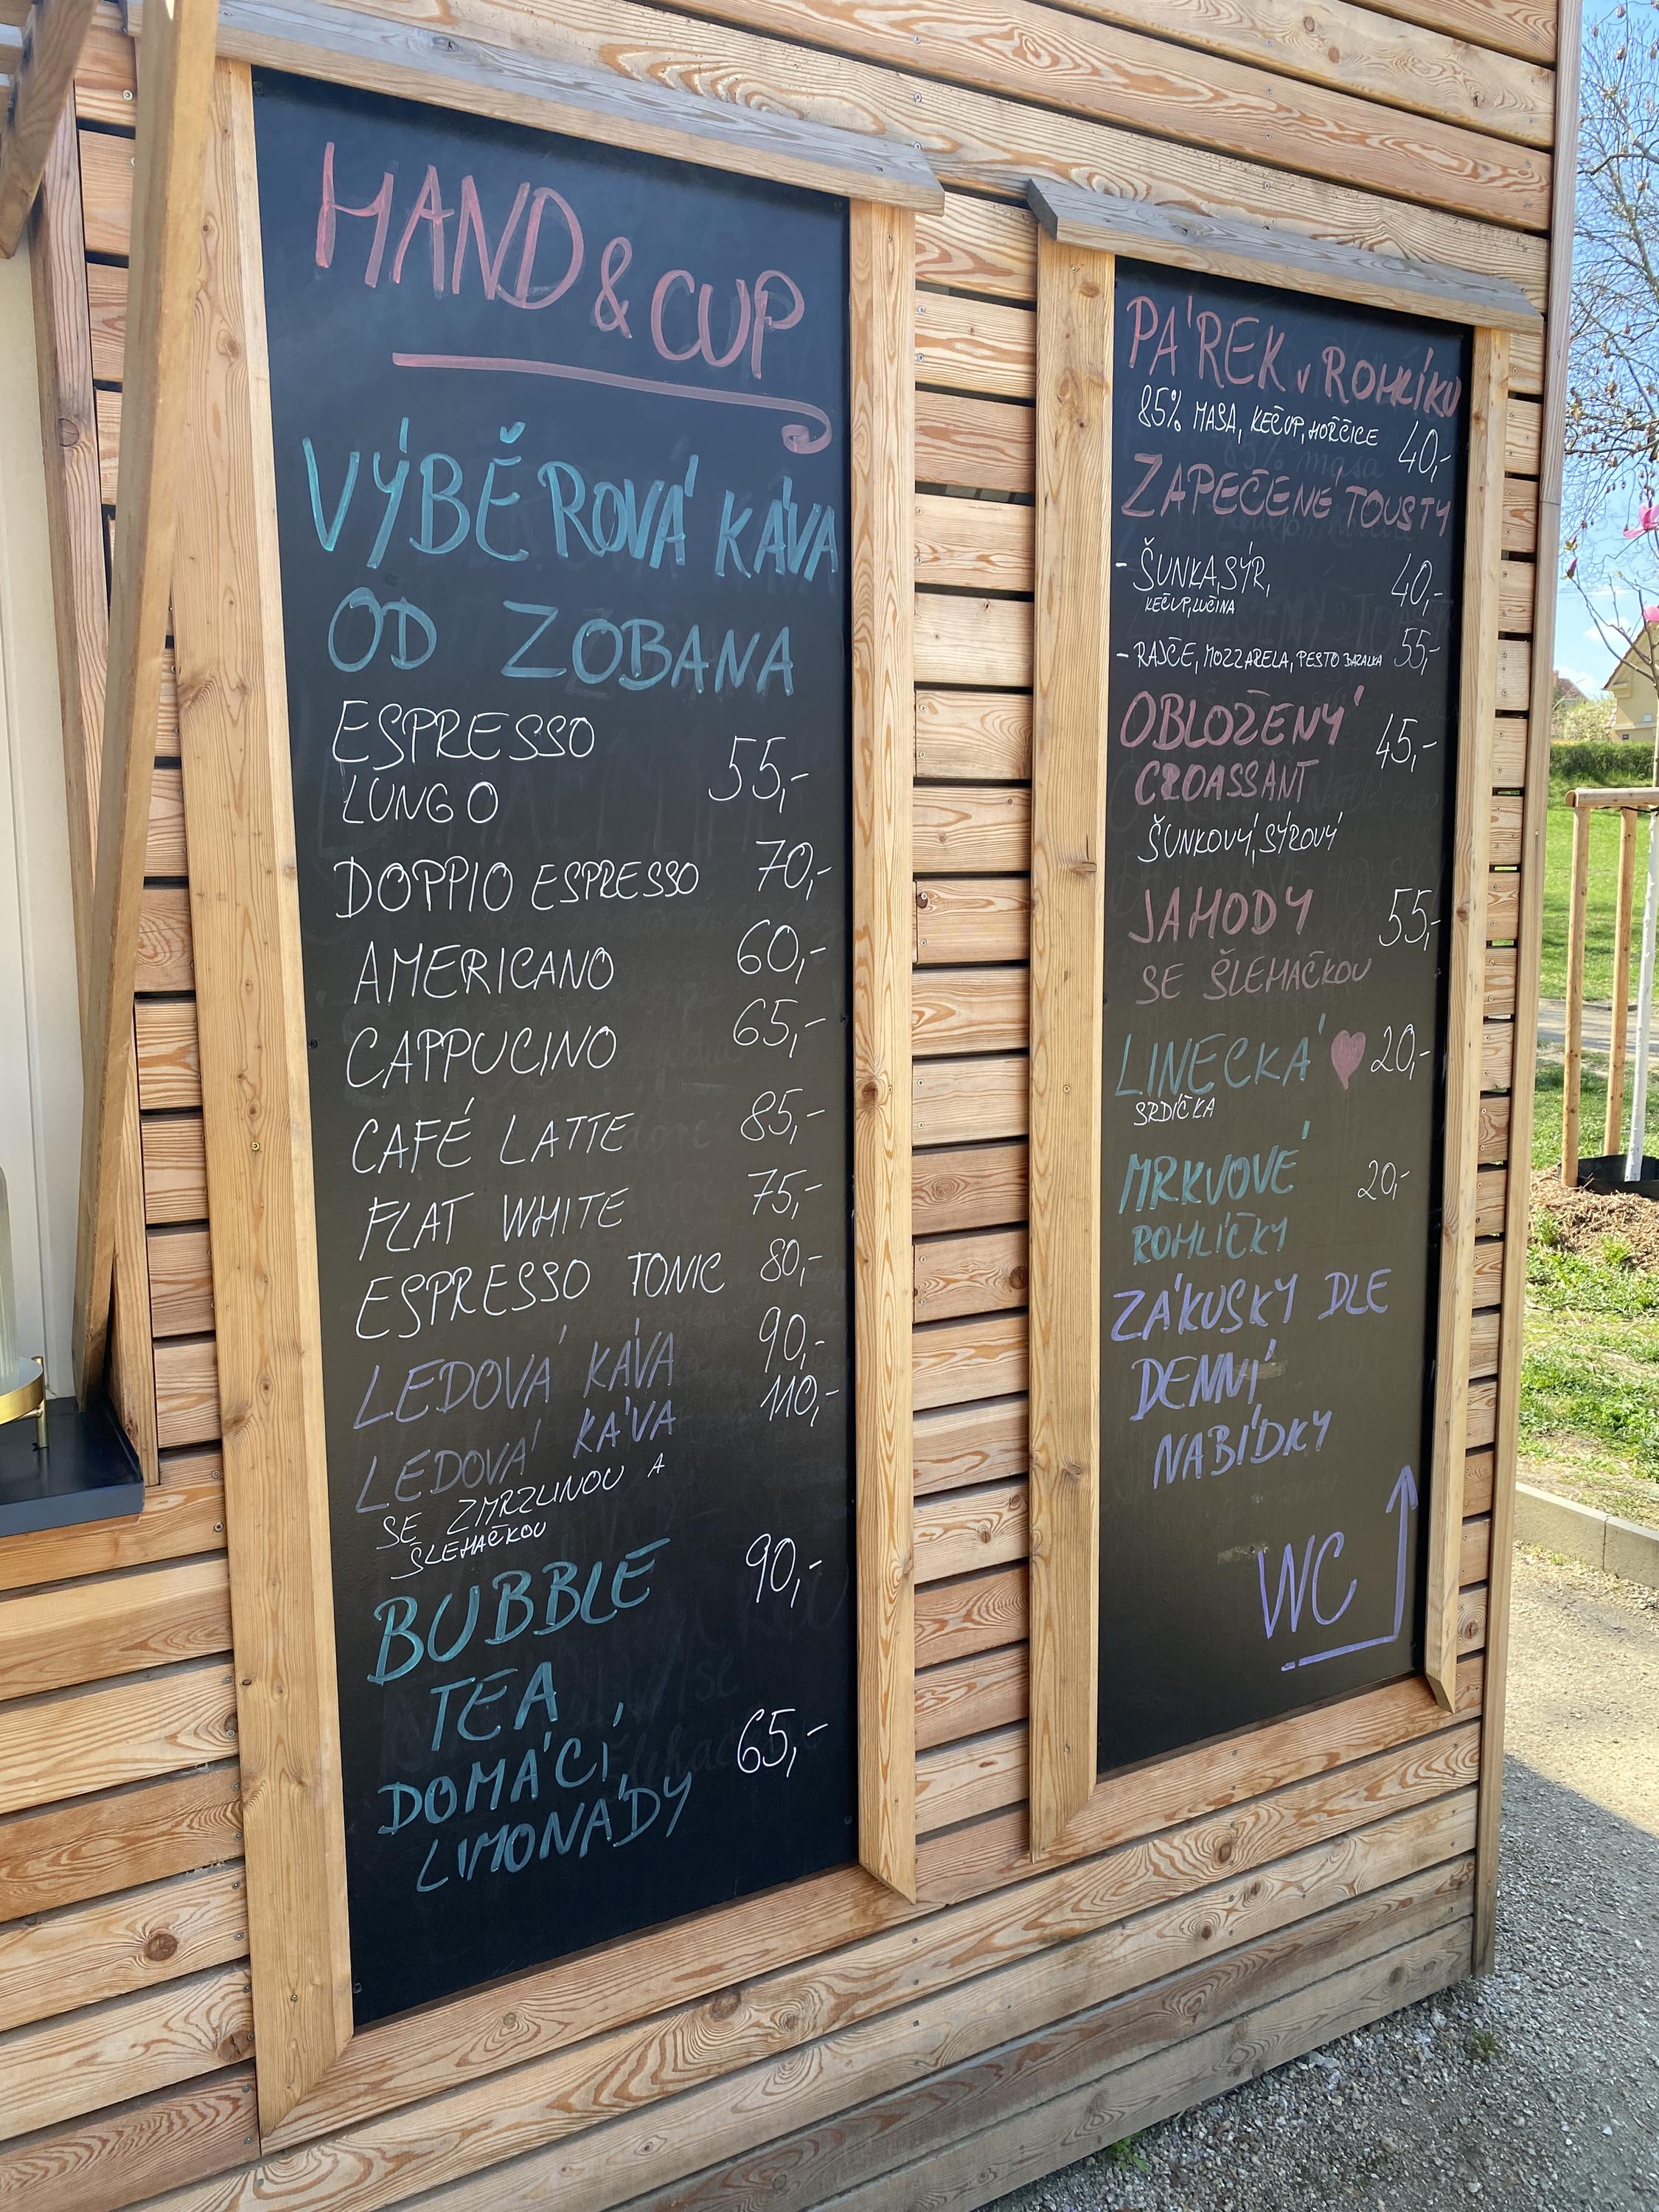 HAND & CUP
VÝBĚROVÁ KÁVA
OD ZOBANA
ESPRESSO
LUNGO 55,-
DOPPIO ESPRESSO 70,-
AMERICANO 60,-
CAPPUCINO 65,-
CAFÉ LATTE 85,-
FLAT WHITE 75,-
ESPRESSO TONIC 80,-
LEDOVÁ KÁVA 90,-
LEDOVÁ KÁVA 110,-
SE ZMRZLINOU A
ŠLEHAČKOU
BUBBLE 90,-
TEA
DOMÁCÍ 65,-
LIMONÁDY
PÁREK v ROHLÍKU
85% MASA, KEČUP, HOŘČICE 40,-
ZAPEČENÉ TOUSTY
- ŠUNKA, SÝR, 40,-
KEČUP, LUČINA
- RAJČE, MOZZARELA, PESTO BAZALKA 55,-
OBLOŽENÝ 45,-
CROASSANT
ŠUNKOVÝ, SÝROVÝ
JAHODY 55,-
SE ŠLEHAČKOU
LINECKÁ 20,-
SRDÍČKA
MRKVOVÉ 20,-
ROHLÍČKY
ZÁKUSKY DLE
DENNÍ
NABÍDKY
WC